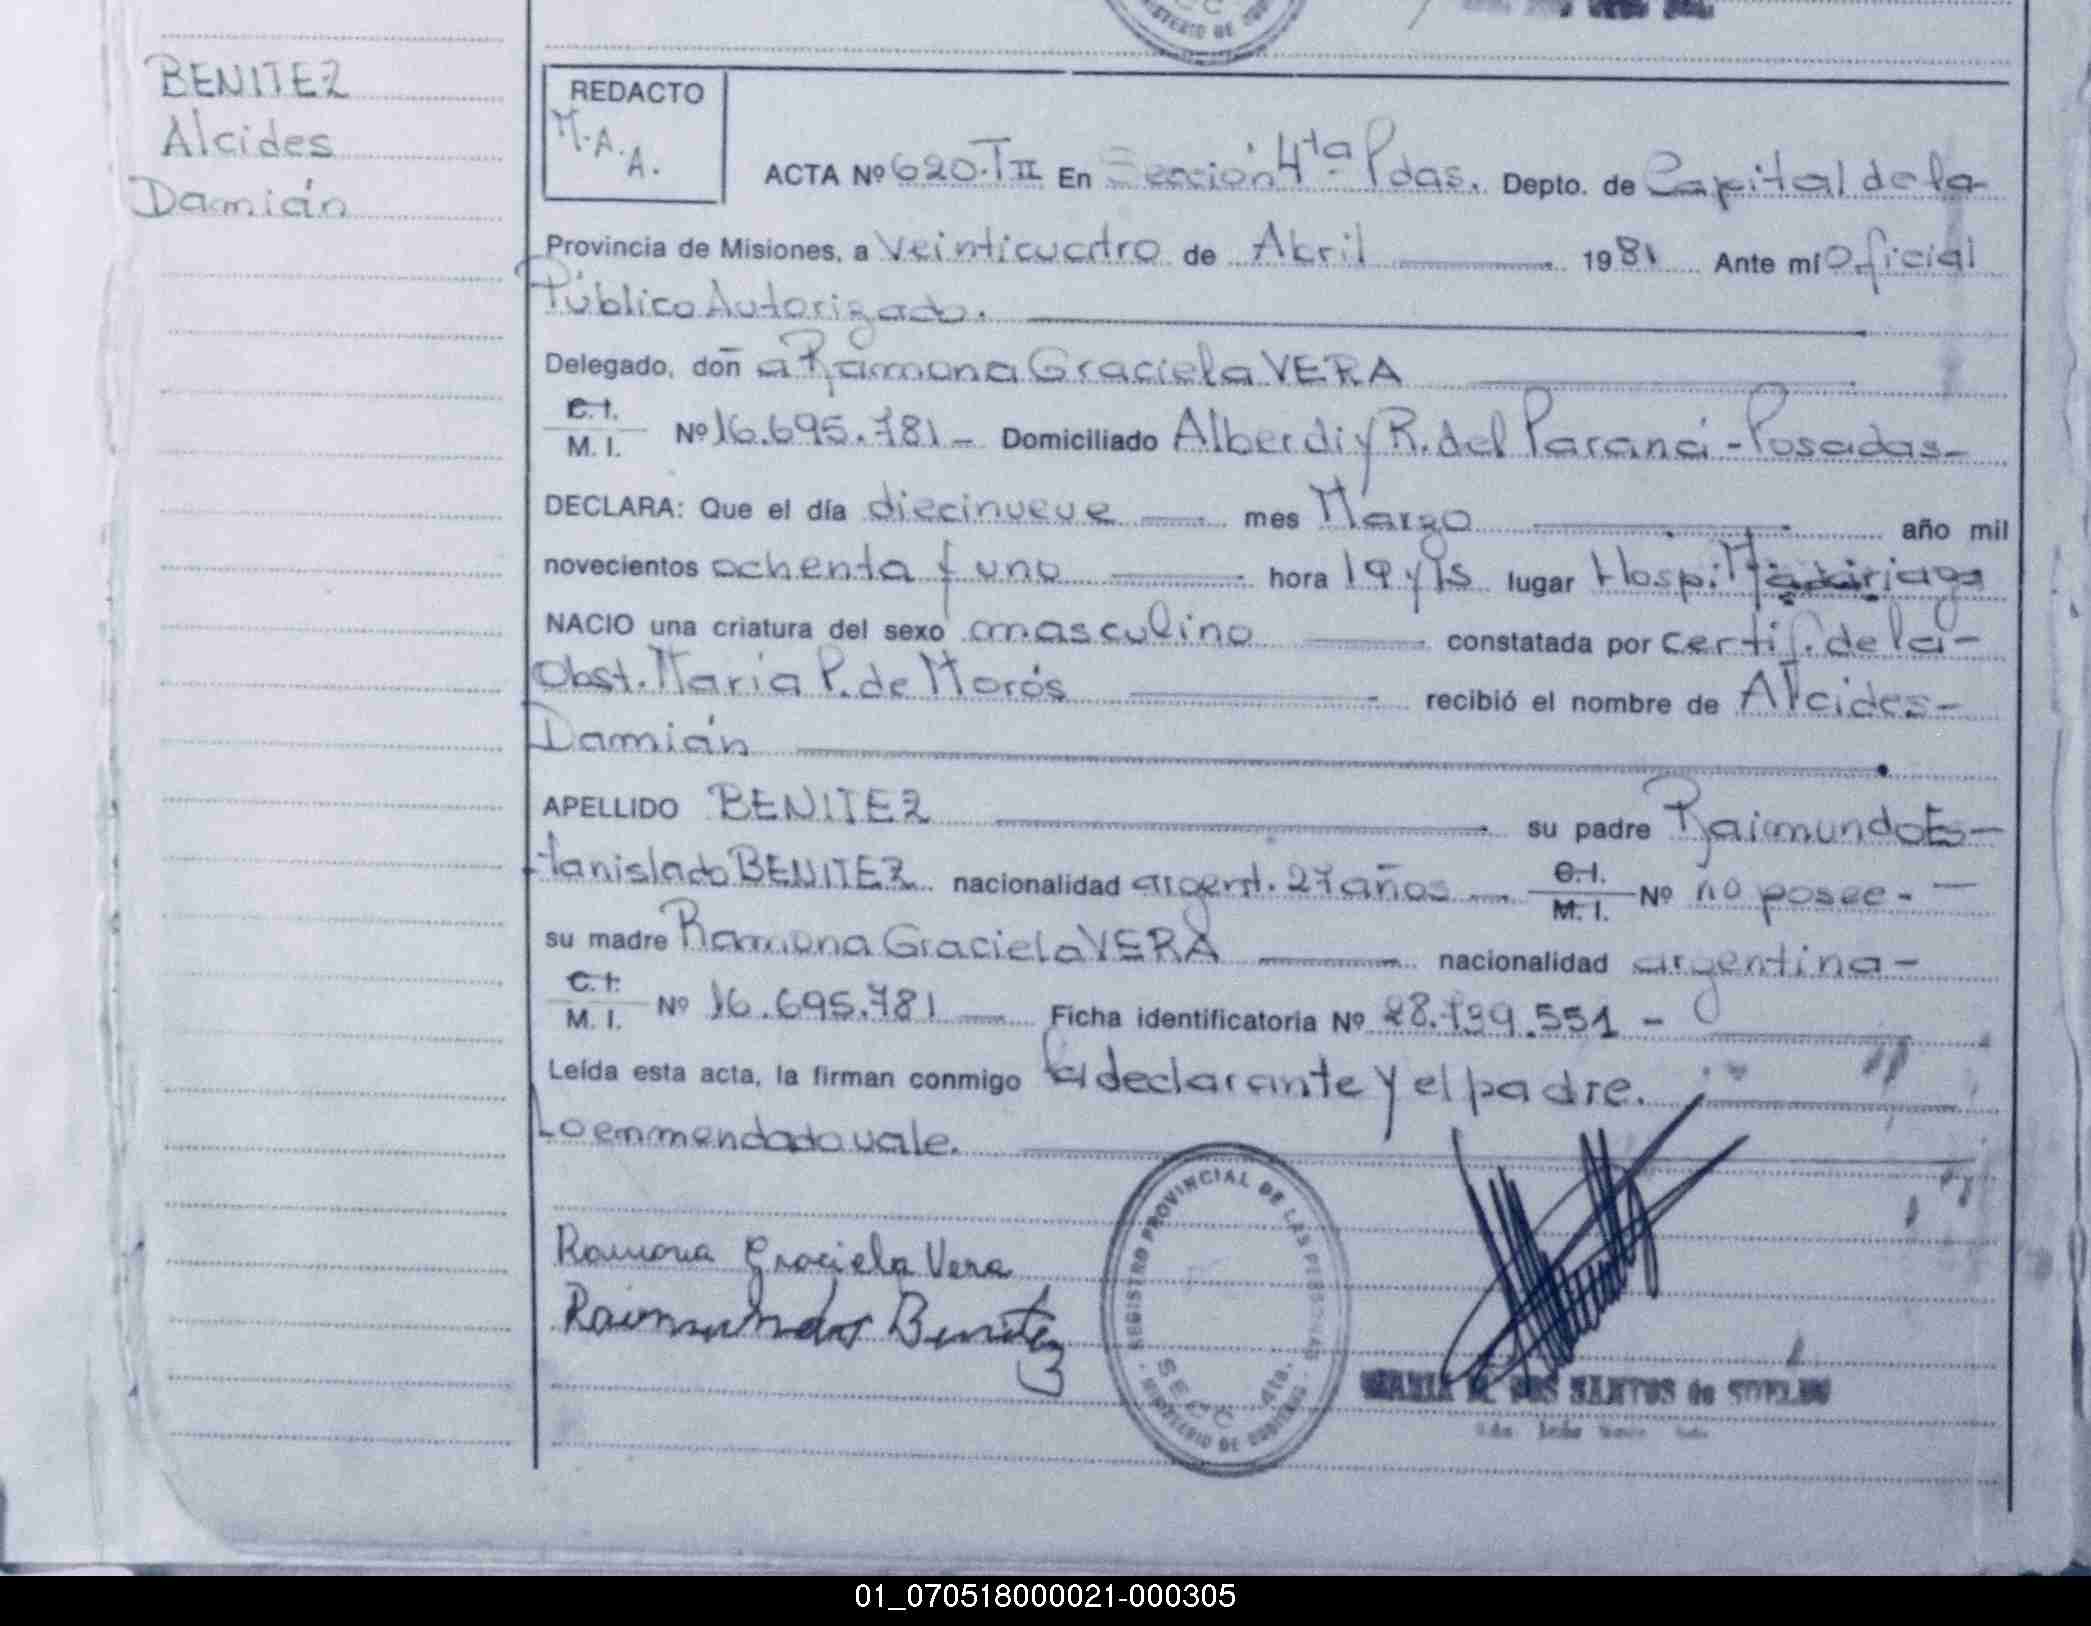 BENITEZ
Alcides
Damián
REDACTO
M.A.
A.
ACTA Nº 620.TII En Sección 4ta. Pdas. Depto. de Capital de la
Provincia de Misiones, a Veinticuatro de Abril 1981 Ante mí Oficial
Público Autorizado.
Delegado, don̄ a Ramona Graciela VERA
C.I.
M. I. Nº 16.695.781 - Domiciliado Alberdi y R. del Paraná - Posadas -
DECLARA: Que el día diecinueve mes Marzo año mil
novecientos ochenta y uno hora 19 y 15 lugar Hosp. Madariaga
NACIO una criatura del sexo masculino constatada por certif. de la -
Obst. María P. de Morós recibió el nombre de Alcides -
Damián
APELLIDO BENITEZ su padre Raimundo Es-
tanislado BENITEZ nacionalidad argent. 27 años C.I.
M. I. Nº no posee -
su madre Ramona Graciela VERA nacionalidad argentina -
C.I.
M. I. Nº 16.695.781 Ficha identificatoria Nº 28.139.551 -
Leída esta acta, la firman conmigo la declarante y el padre.
Lo emmendado vale.
Ramona Graciela Vera
Raimundo Benitez
REGISTRO PROVINCIAL DE LAS PERSONAS
SECC 4ta.
MINISTERIO DE GOBIERNO
DOS SANTOS de
01_070518000021-000305